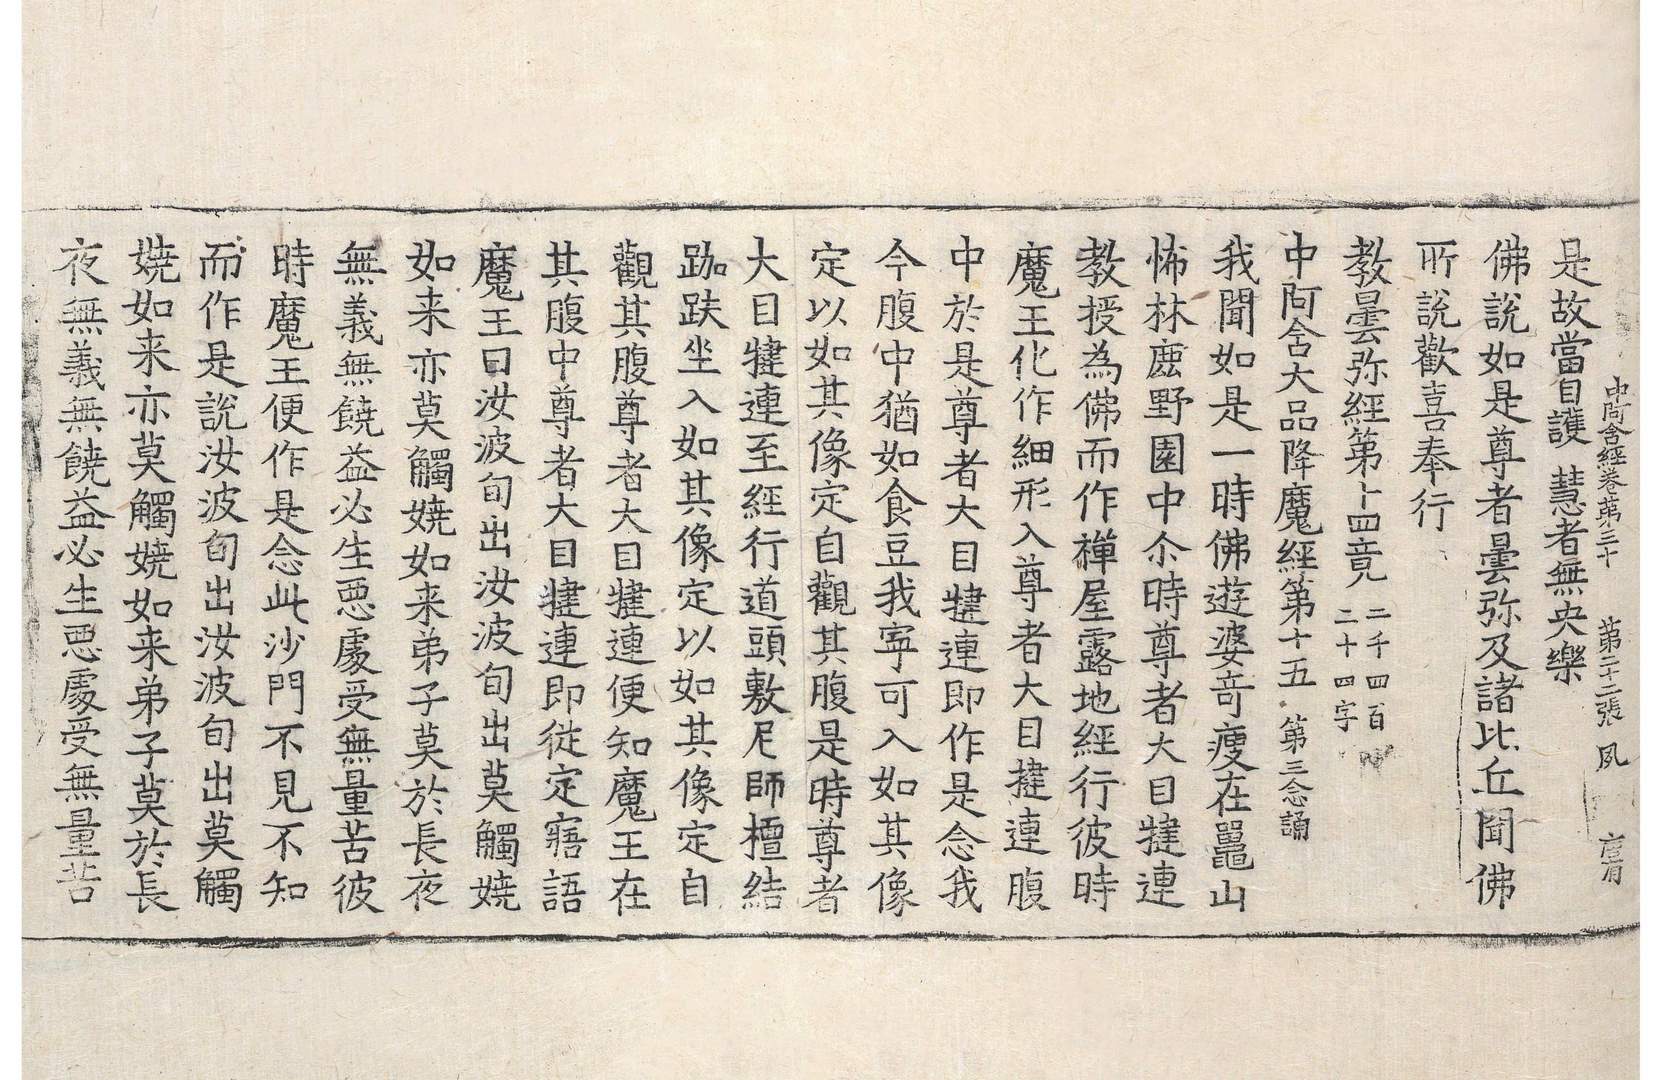 中阿含經卷第三十　第二十二張　夙
是故當自護　慧者無央樂
佛說如是尊者曇弥及諸比丘聞佛
所說歡喜奉行
教曇弥經第十四竟　二千四百二十四字
中阿含大品降魔經第十五　第三念誦
我聞如是一時佛遊婆竒瘦在鼉山
怖林䴢野園中尒時尊者大目揵連
教授為佛而作禪屋露地經行彼時
魔王化作細形入尊者大目揵連腹
中於是尊者大目揵連即作是念我
今腹中猶如食豆我寜可入如其像
定以如其像定自觀其腹是時尊者
大目揵連至經行道頭敷尼師檀結
跏趺坐入如其像定以如其像定自
觀其腹尊者大目揵連便知魔王在
其腹中尊者大目揵連即從定寤語
魔王曰汝波旬出汝波旬出莫觸嬈
如来亦莫觸嬈如来弟子莫於長夜
無義無饒益必生惡處受無量苦彼
時魔王便作是念此沙門不見不知
而作是說汝波旬出汝波旬出莫觸
嬈如来亦莫觸嬈如来弟子莫於長
夜無義無饒益必生惡處受無量苦